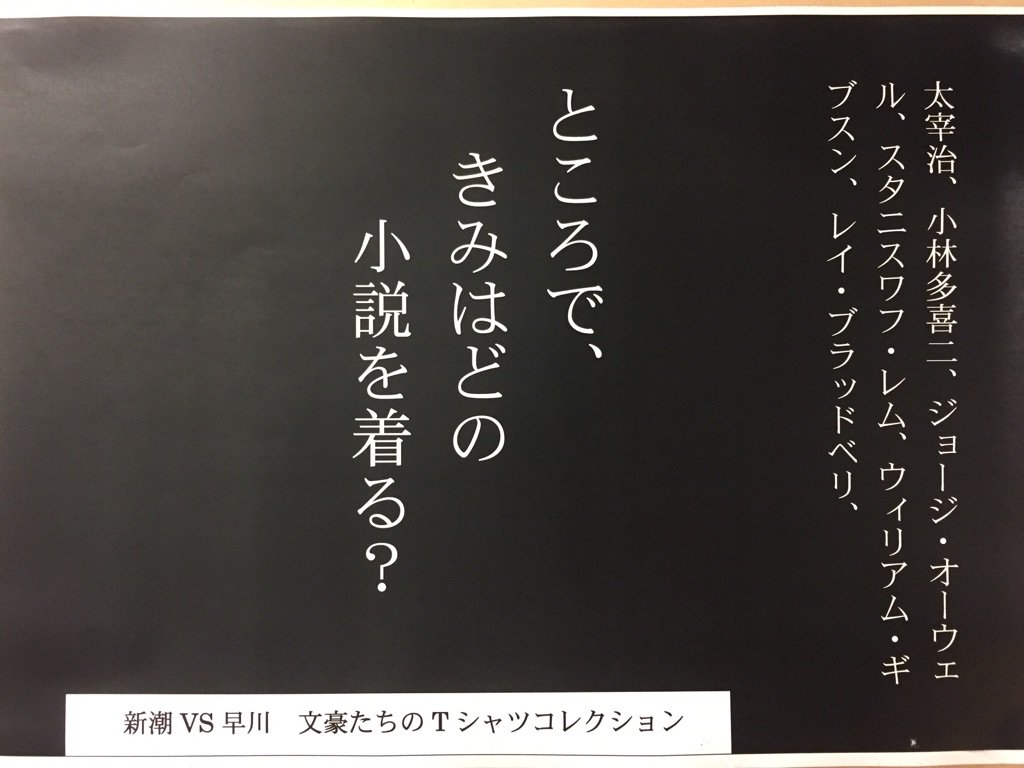 太宰治、小林多喜二、ジョージ・オーウェ
ル、スタニスワフ・レム、ウィリアム・ギ
ブスン、レイ・ブラッドベリ、
ところで、
きみはどの
小説を着る？
新潮VS早川　文豪たちのTシャツコレクション